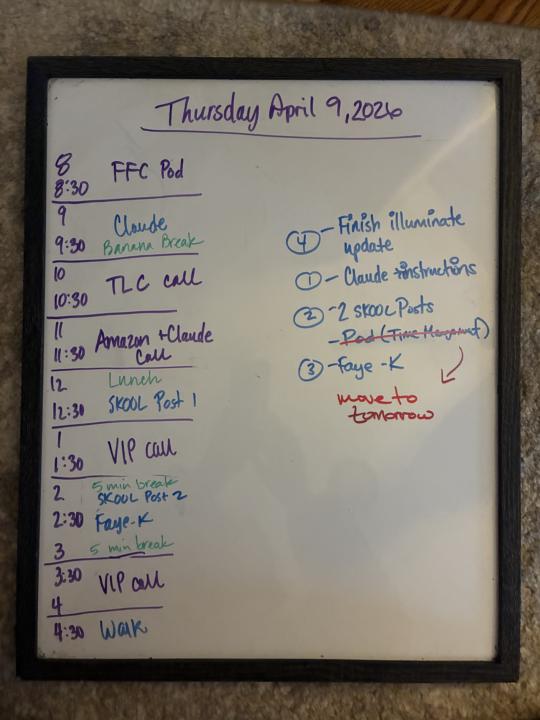 Thursday April 9, 2026
8 FFC Pod
8:30
9 Claude
9:30 Banana Break
10 TLC call
10:30
11 Amazon + Claude
11:30 call
12 Lunch
12:30 SKOOL Post 1
1 VIP call
1:30
5 min break
2 SKOOL Post 2
2:30 Faye-K
3 5 min break
3:30 VIP call
4
4:30 Walk
4 - Finish illuminate
update
1 - Claude instructions
2 - 2 SKOOL Posts
- Pod (Time Management)
3 - Faye-K
move to
tomorrow